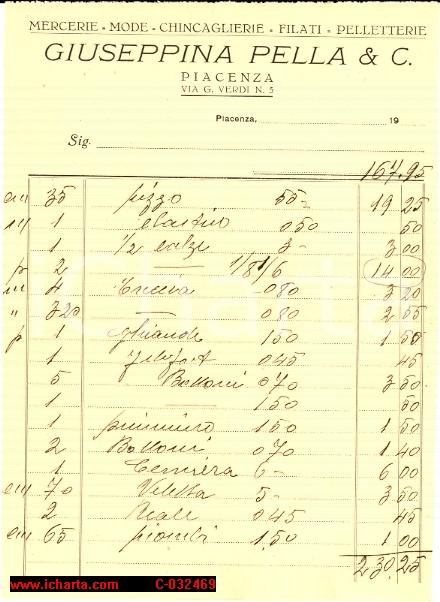 MERCERIE - MODE - CHINCAGLIERIE - FILATI - PELLETTERIE
GIUSEPPINA PELLA & C.
PIACENZA
VIA G. VERDI N. 5
Piacenza, 19
Sig.
167.95
35 pizzo 55- 19 25
1 elastico 0 50 50
1 1/2 calze 3- 3 00
p 2 — 14 00
m 4 Treccia 0 80 3 20
" 320 — 0 80 2 55
p 1 Ghiande 1 50 1 50
1 0 45 45
5 Bottoni 0 70 3 50
1 — 1 50 50
1 1 50 1 50
2 Bottoni 0 70 1 40
1 Cerniera 6- 6 00
70 5- 3 50
2 0 45 45
65 piombi 1.50 1 00
230.25
www.icharta.com C-032469
icharta